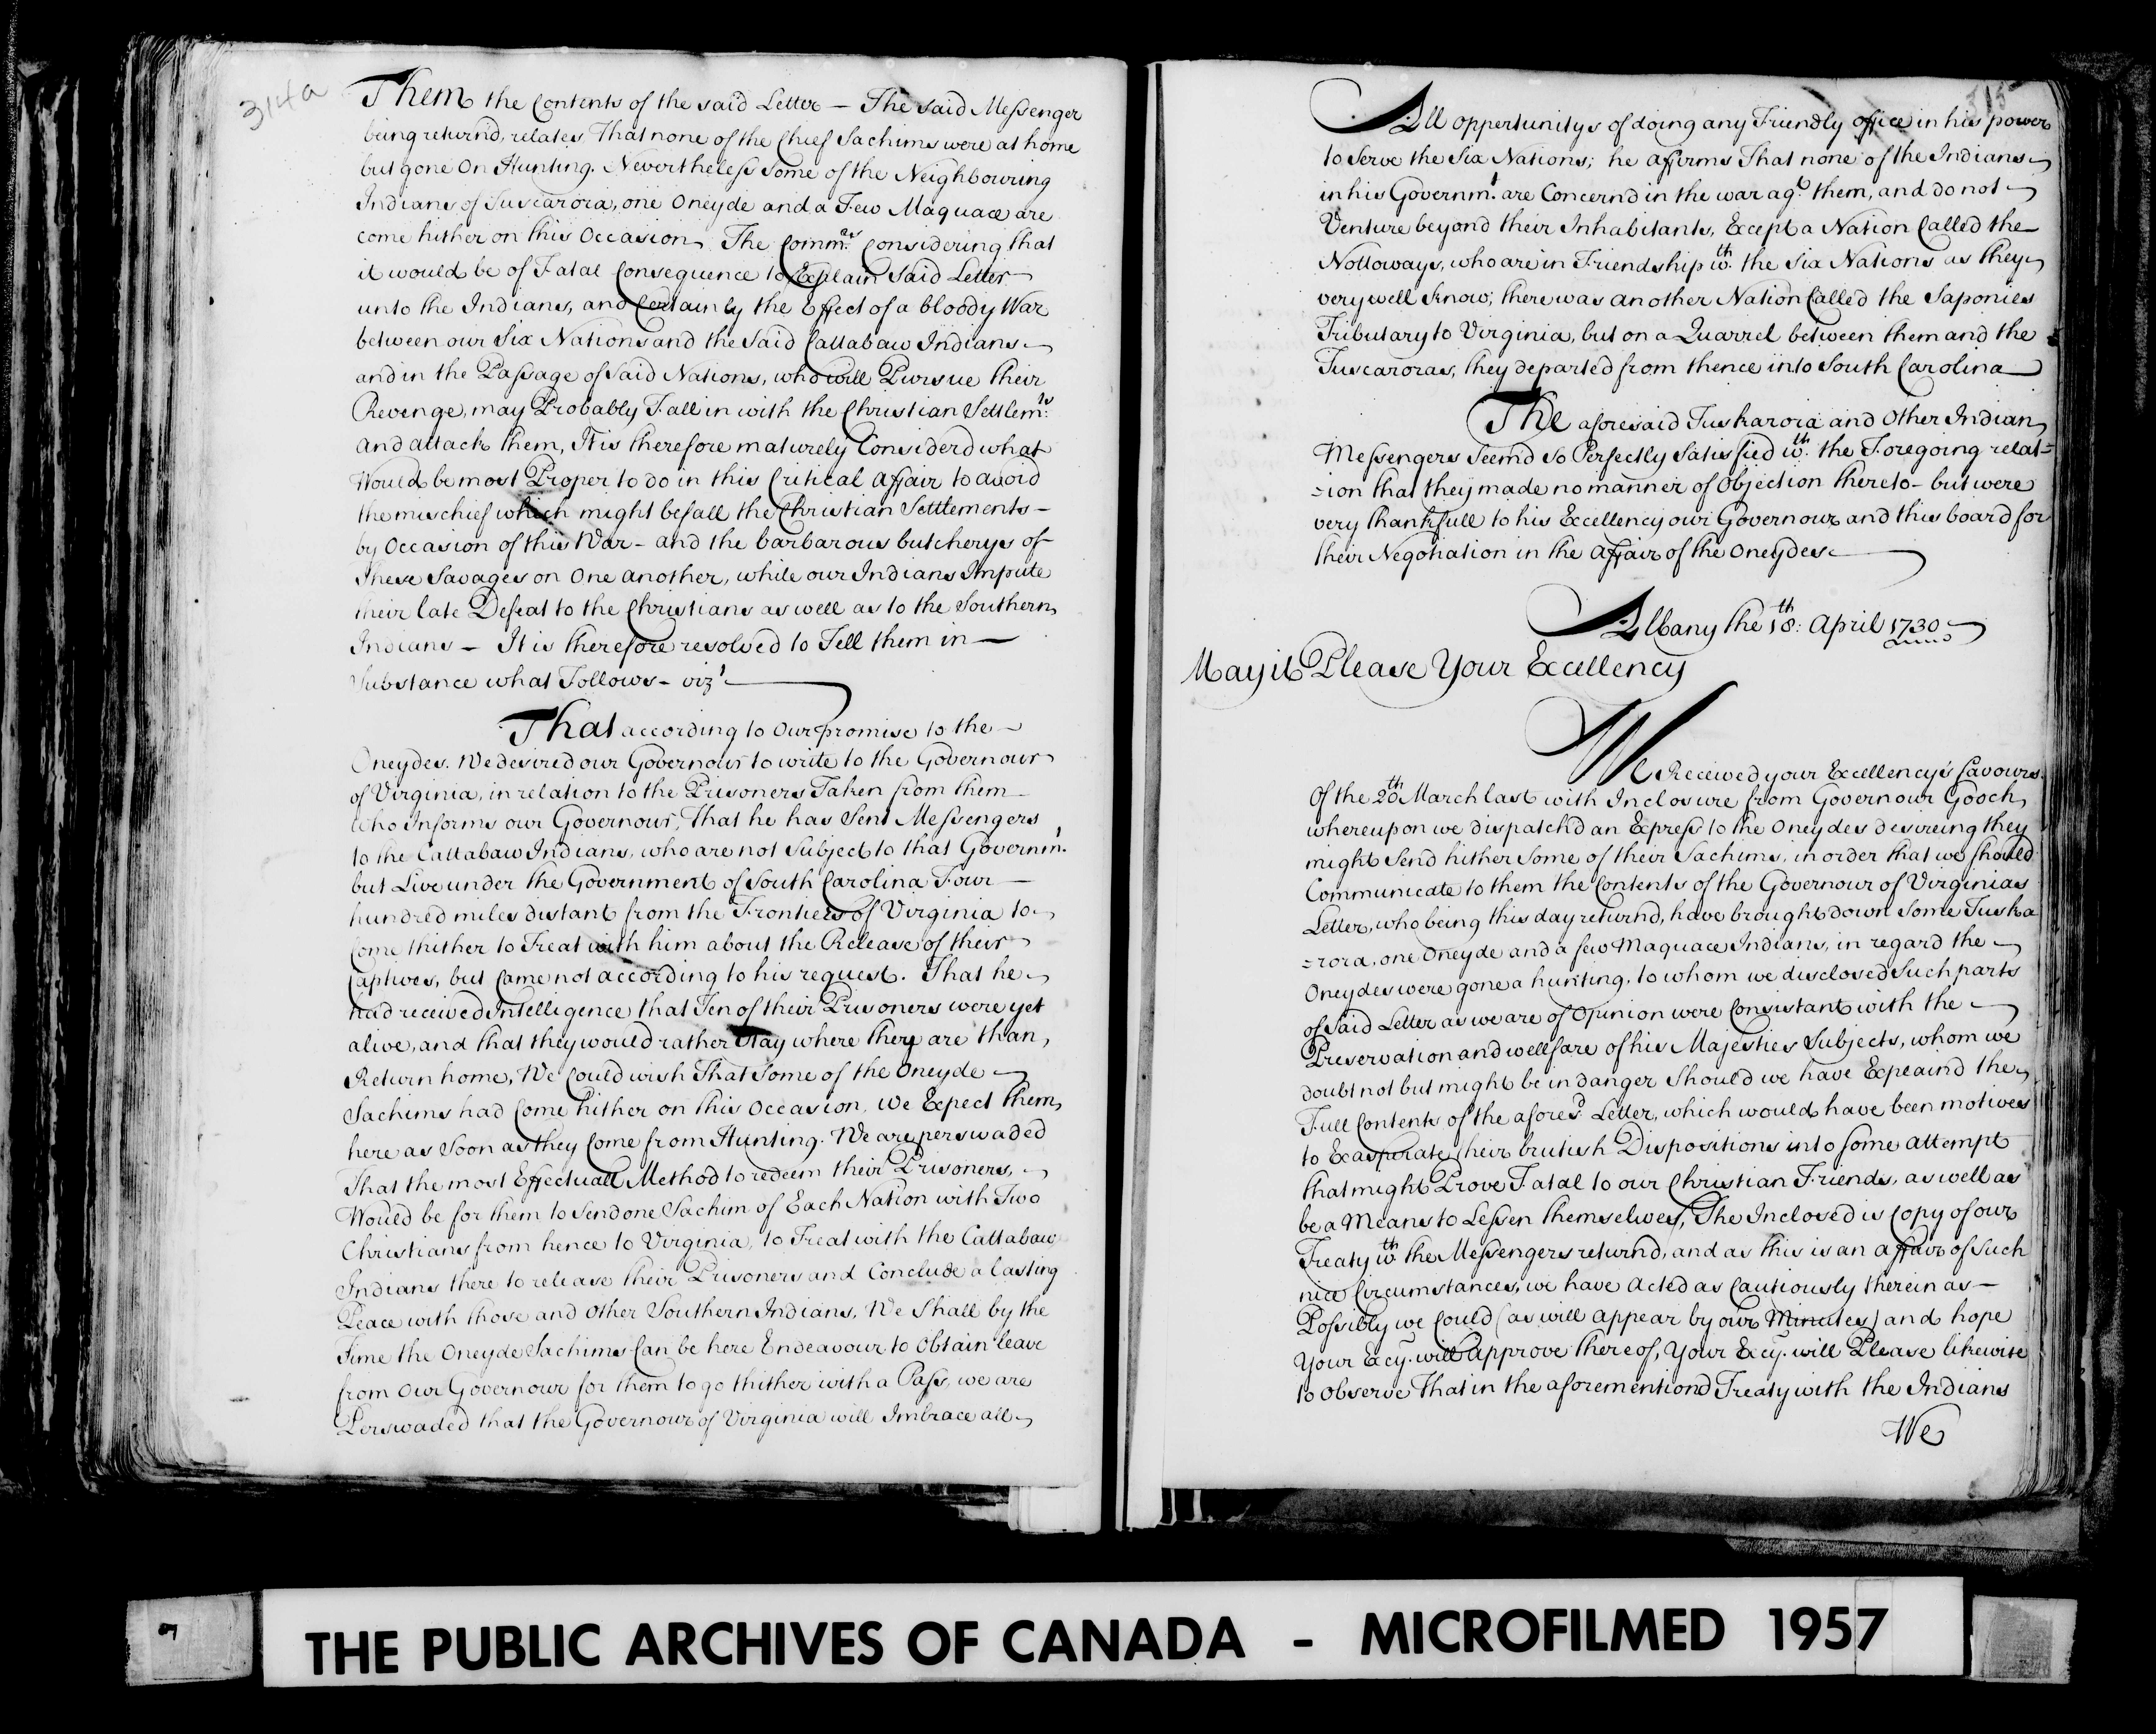 314a
Them the Contents of the said Letter — The said Messenger
being returnd, relates That none of the Chief Sachims were at home
but gone On Hunting. Nevertheless some of the Neighbouring
Indians of Tuscarora, one Oneyde and a Few Maquace are
come hither on this Occasion, The Comm.rs Considering that
it would be of Fatal Consequence to Explain Said Letter
unto the Indians, and Certainly the Effect of a bloody War
between our Six Nations and the Said Cattabaw Indians
and in the Passage of said Nations, who will Pursue their
Revenge, may Probably Fall in with the Christian Settlem.ts
and attack them, It is therefore maturely Considerd what
Would be most Proper to do in this Critical affair to avoid
the mischief which might befall the Christian Setttlements —
by Occasion of this War - and the barbarous butcherys of
These Savages on One another, while our Indians Impute
their late Defeat to the Christians as well as to the Southern
Indians — It is therefore resolved to Tell them in —
Substance what Follows - viz.t
That according to Our promise to the —
Oneydes. We desired our Governour to write to the Governour
of Virginia, in relation to the Prisoners Taken from them
who Informs our Governour, That he has Sent Messengers
to the Cattabaw Indians, who are not Subject to that Governm.t
but Live under the Government of South Carolina Four —
hundred miles distant from the Frontiers of Virginia to
Come thither to Treat with him about the Release of their
Captives, but Came not according to his request. That he
had received Intelligence that Ten of their Prisoners were yet
alive, and that they would rather Stay where they are than,
Return home, We Could wish That Some of the Oneyde
Sachims had Come hither on this Occasion, We Expect them,
here as Soon as they Come from Hunting. We are perswaded
That the most Effectuall Method to redeem their Prisoners,
Would be for them to Send one Sachim of Each Nation with Two
Christians from hence to Virginia, to Treat with the Cattabaw
Indians there to release their Prisoners and Conclude a lasting
Peace with those and other Southern Indians, We Shall by the
Time the Oneyde Sachims Can be here Endeavour to Obtain leave
from Our Governour for them to go thither with a Pass, we are
Perswaded that the Governour of Virginia will Imbrace all
315
All oppertunitys of doing any Friendly office in his power
to Serve the Six Nations; he affirms That none of the Indians
in his Governm.t are Concernd in the war ag.t them, and do not
Venture beyond their Inhabitants, Except a Nation Called the
Nottoways, who are in Friendship w.th the Six Nations as they
very well know; there was another Nation Called the Saponies
Tributary to Virginia, but on a Quarrel between them and the
Tuscaroras, they departed from thence into South Carolina
The aforesaid Tuskarora and Other Indian
Messengers Seem'd so Perfectly Satisfied w.th the Foregoing relat=
=ion that they made no manner of Objection thereto - but were
very thankfull to his Excellency our Governour and this board for
their Negotiation in the affair of the Oneydes
Albany the 18.th April 1730
May it Please Your Excellency
We Received your Excellency's favours
Of the 20.th March last with Inclosure from Governour Gooch,
whereupon we dispatch'd an Express to the Oneydes desireing they
might Send hither Some of their Sachims, in order that we should
Communicate to them the Contents of the Governour of Virginias
Letter, who being this day returnd, have brought down Some Tuska
=rora, one Oneyde and a few Maquace Indians, in regard the
Oneydes were gone a hunting, to whom we disclosed Such parts
of Said Letter as we are of Opinion were Consistant with the
Preservation and wellfare of his Majesties Subjects, whom we
doubt not but might be in danger Should we have Expeaind the
Full Contents of the afores.d Letter, which would have been motives
to Exasperate their brutish Dispositions into some attempt
that might Prove Fatal to our Christian Friends, as well as
be a Means to Lessen themselves, The Inclosed is Copy of our
Treaty w.th the Messengers returnd, and as this is an affair of Such
nice Circumstances, we have acted as Cautiously therein as —
Possibly we Could (as will appear by our Minutes) and hope
Your Excy. will Approve thereof, Your Excy. will Please likewise
to Observe That in the aforementiond Treaty with the Indians
We
THE PUBLIC ARCHIVES OF CANADA - MICROFILMED 1957